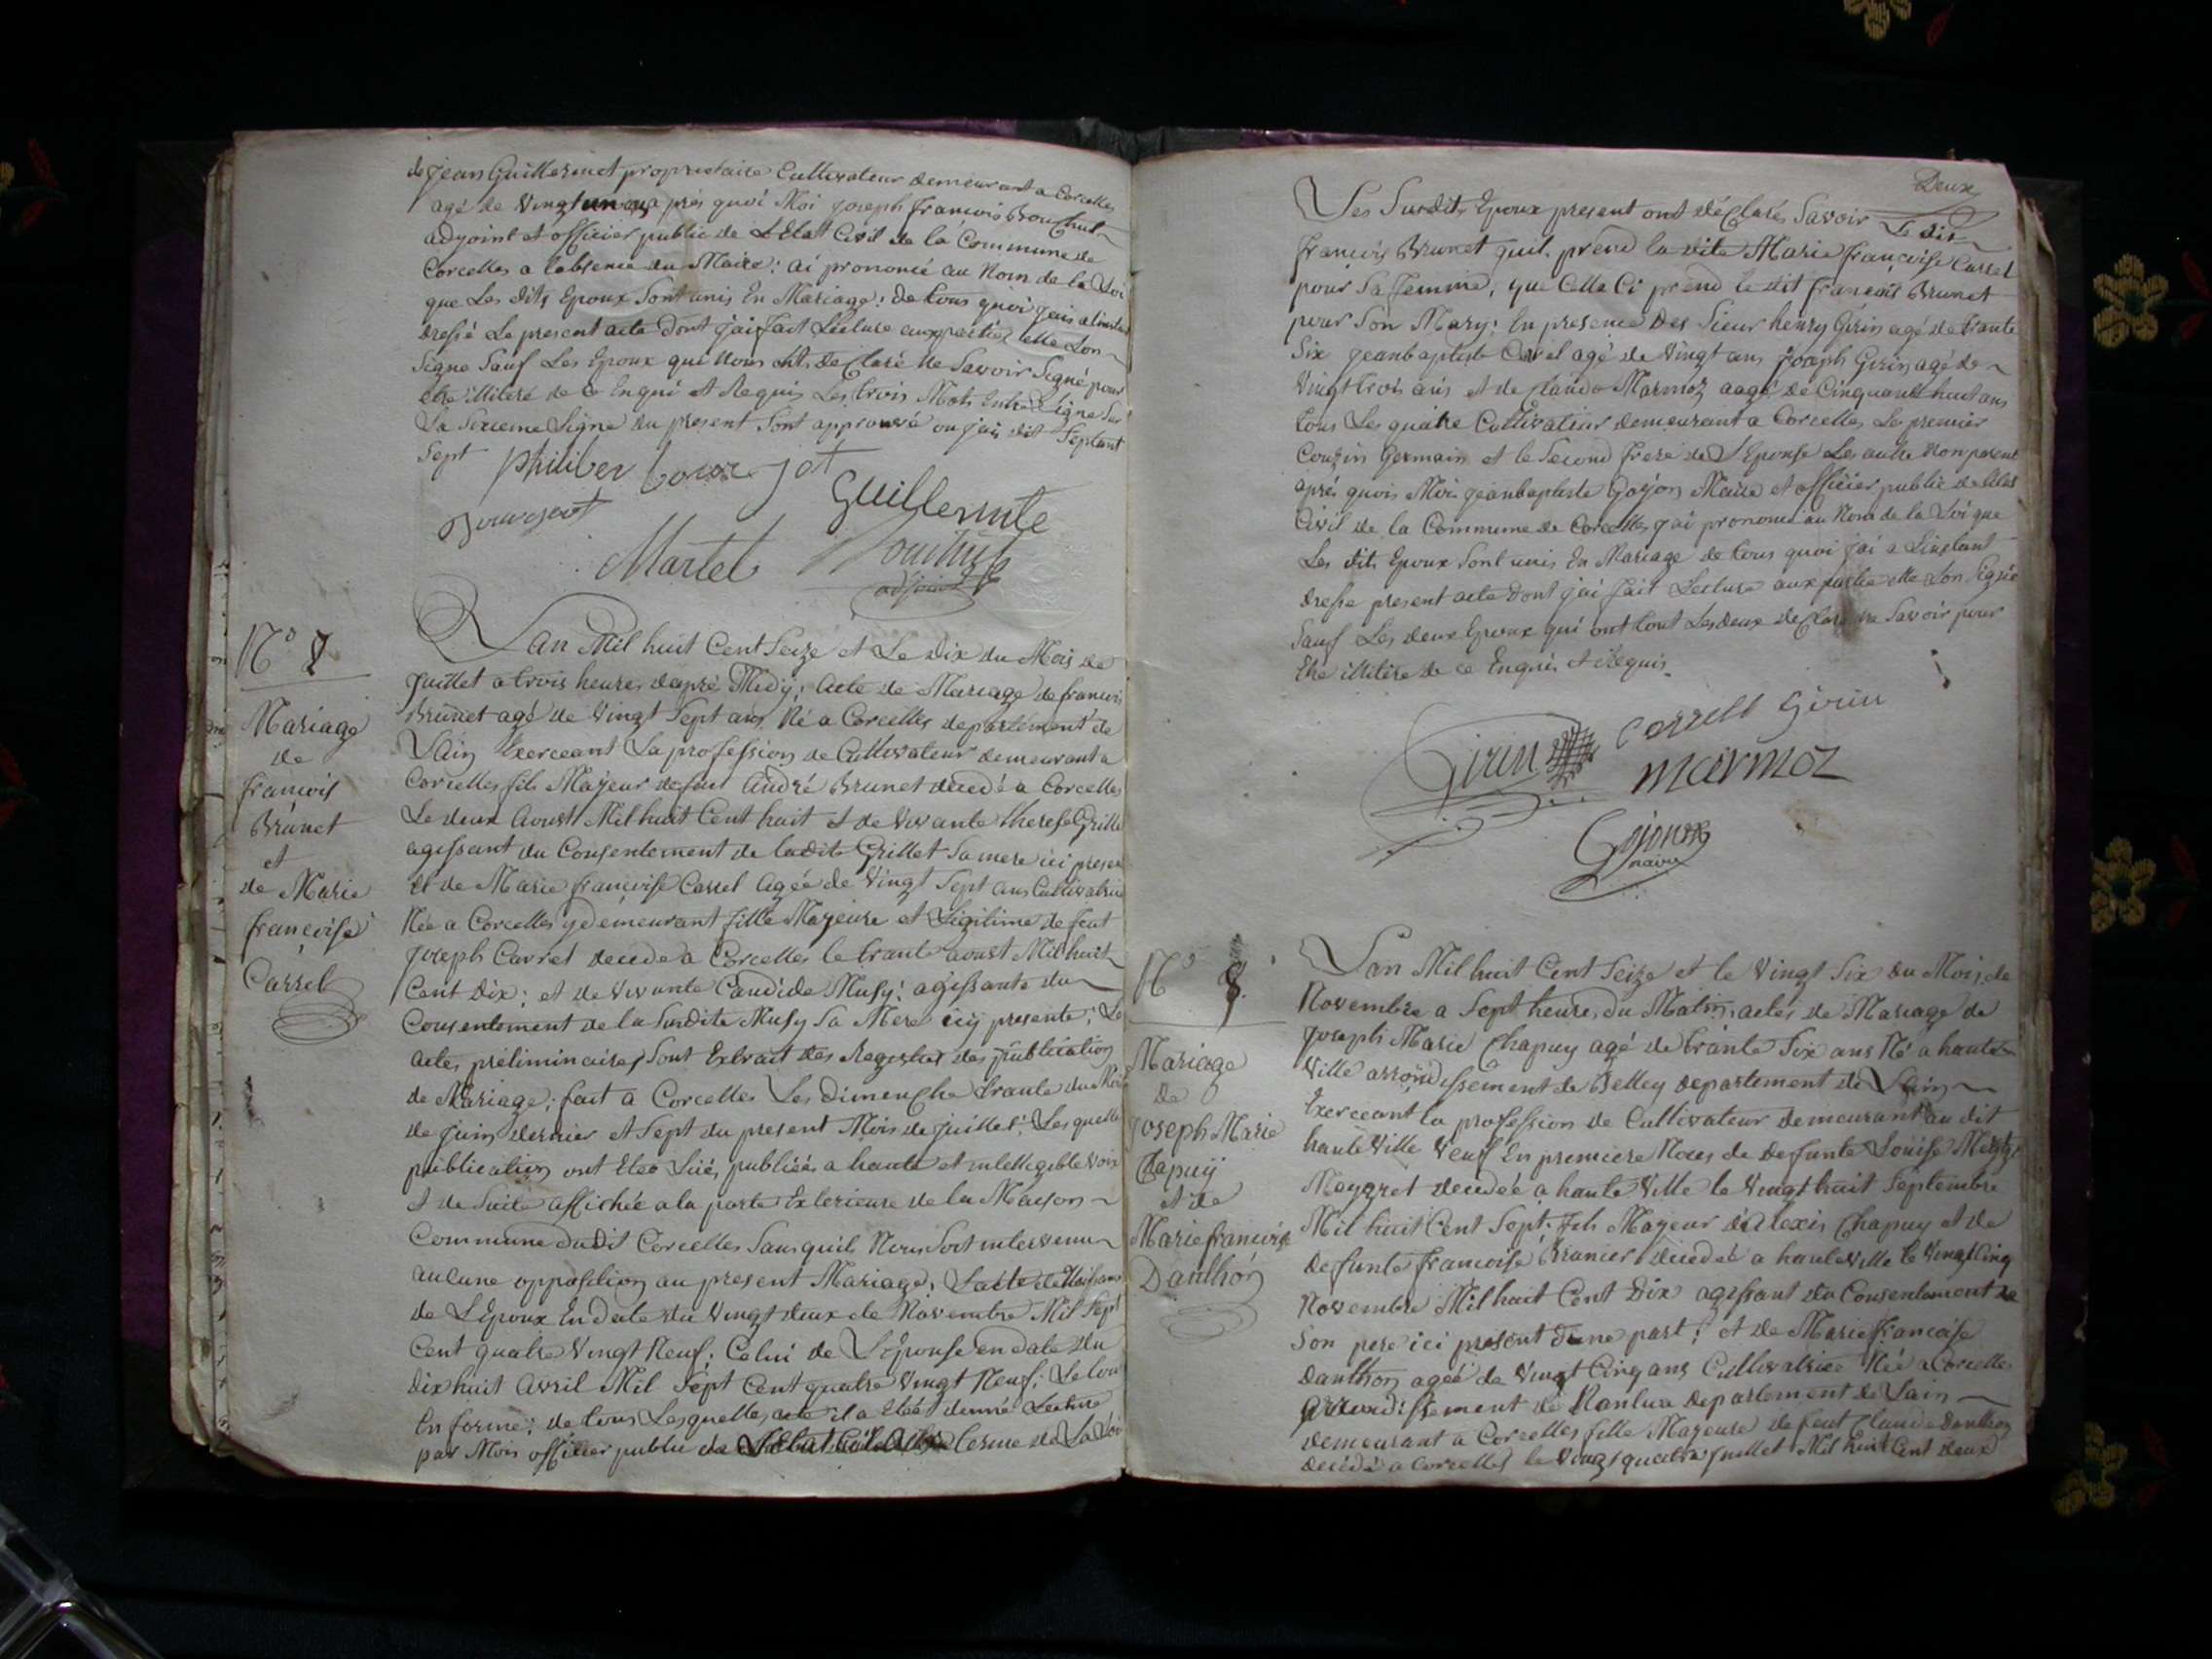 de Jean Guillermet proprietaire Cultivateur demeurant a Corcelles
agé de Vingt un ans après quoi Moi joseph francois Bouchut
adjoint et officier public de L'Etat Civil de la Commune de
Corcelles a labsence du Maire: ai prononcé au Nom de la Loi
que Les dits Epoux Sont unis En Mariage: de tous quoi j'ais a linstant
dressé Le present acte dont j'ai fait Lecture aux parties elle Lon
Signe Sauf Les Epoux qui Nous ont declaré Ne Savoir Signé pour
etre illiteré de ce Enqui et Requis Les trois Mots Entre Ligne Sur
La Sixieme Ligne du present Sont approuvé ou j'ais dit Septant
Sept
philiber bourjot
Guillermte
Martel Bouchut
adjoint
N° 7
Mariage
de
francois
Brunet
et
de Marie
francoise
Carrel
Lan Mil huit Cent Seize et Le Dix du Mois de
Juillet a trois heures dapré Midy; acte de Mariage de francois
Brunet agé de Vingt Sept ans Né a Corcelles departement de
Lain Exerceant La profession de Cultivateur demeurant a
Corcelles fils Majeur de feut André Brunet decedé a Corcelles
Le deux Aoust Mil huit Cent huit et de Vivante therese Grillet
agissant du Consentement de ladite Grillet Sa mere ici presen
Et de Marie francoise Carrel Agée de Vingt Sept ans Cultivatrice
Née a Corcelles y demeurant fille Mayeure et Legitime de feut
Joseph Carret decede a Corcelles le trante aoust Mil huit
Cent Dix; et de Vivante Candide Musy: agissante du
Consentement de la Susdite Musy Sa Mere icy presente; Le
actes préliminaires Sont Extrait des Registres des publication
de Mariage; fait a Corcelles Les Dimenche trante du Mois
de juin dernier et Sept du present Mois de juillet: Les quelle
publication ont Etee Lués, publiéés a haute et intellegible Voix
et de Suite affichée a la porte Exterieure de la Mayson
Commune dudit Corcelles Sans quil Nous Soit intervenu
aucune opposition au present Mariage; Lacte de Naissance
de L'Epoux En date du Vingt deux de Novembre Mil Sept
Cent quatre Vingt Neuf; Celui de L'Epouse en date du
Dix huit Avril Mil Sept Cent quatre Vingt Neuf; Le tout
En forme; de tous Lesquelles acte il a Eteé donné Lecture
par Mois officier public de Terme de La Loi
Deux
Les Susdits Epoux present ont déclaré Savoir Le dit
francois Brunet quil prend la dite Marie francoise Carrel
pour Sa femme, que Celle Ci prend le dit francois Brunet
pour Son Mary: En presence Des Sieur henry Girin agé de trante
Six jeanbaptiste Carrel agé de Vingt ans Joseph Girin agé de
Vingt trois ans et de Claude Marmoz aagé de Cinquante huit ans
tous Les quatre Cultivateur demeurant a Corcelles Le premier
Couzin Germain et le Second frere de L'Epouse Les autre Non parent
aprés quois Moi jeanbaptiste Gojon Maire et officier public de letat
Civil de la Commune de Corcelles j'ai prononcé au Nom de la Loi que
Les dits Epoux Sont unis En Mariage de tous quoi j'ai a Linstant
dresse present acte dont j'ai fait Lecture aux partie elle Lon Signé
Sauf Les deux Epoux qui ont tout Les deux declaré ne Savoir pour
Etre illitere de ce Enquis et Requis.
Girin Carrell Girin
marmoz
Gojon
maire
N° 8
Mariage
de
Joseph Marie
Chapuy
et de
Marie francoise
Danthon
Lan Mil huit Cent Seize et le Vingt Six du Mois de
Novembre a Sept heures du Matin, actes de Mariage de
Joseph Marie Chapuy agé de trante Six ans Né a haute
Ville arrondissement de Belley departement de Lain
Exerceant la profession de Cultivateur demeurant au dit
haute Ville Veuf En premiere Noces de defunte Louise
Meygret decedée a haute Ville le Vingt huit Septembre
Mil huit Cent Sept: fils Mayeur d'Alexis Chapuy et de
defunte francoise decedée a haute Ville le Vingt Cinq
Novembre Mil huit Cent Dix agissant du Consentement de
Son pere ici present d'une part; et de Marie francoise
Danthon agée de Vingt Cinq ans Cultivatrice Née a Corcelles
arrondissement de Nantua departement de Lain
demeurant a Corcelles fille Mayeure de feut Claude Danthon
decédé a Corcelles le Vingt quatre juillet Mil huit Cent deux